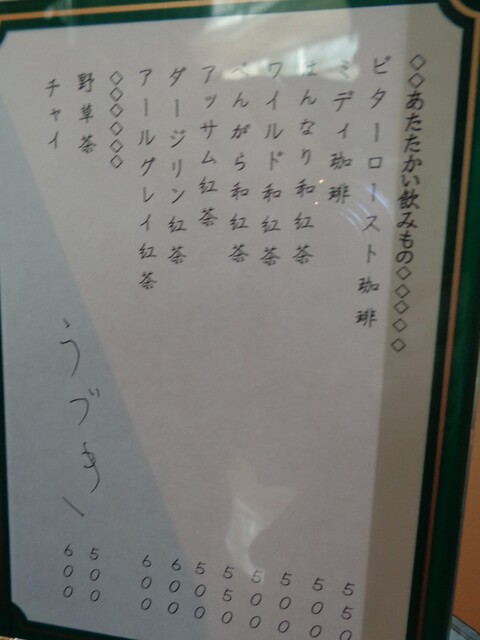 ◇◇あたたかい飲みもの◇◇◇◇◇
ビターロースト珈琲 550
ミディ珈琲 500
はんなり和紅茶 500
ワイルド和紅茶 500
べんがら和紅茶 550
アッサム紅茶 500
ダージリン紅茶 600
アールグレイ紅茶 600
◇◇◇◇◇◇
野草茶 500
チャイ 600
うづき